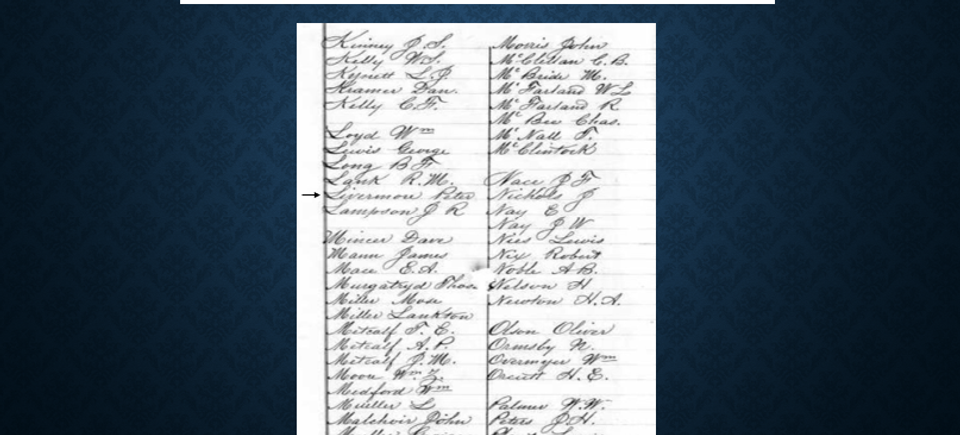 Kinney J. S.
Kelly W. S.
Kynett L. J.
Kramer Dan.
Kelly C. F.
Loyd Wm
Lewis George
Long B F
Lank R. M.
Livermore Peter
Lampson J R
Mincer Dave
Mann James
Mace E. A.
Murgatryd Thos.
Miller Mose
Miller Lankton
Metcalf T. E.
Metcalf A. P.
Metcalf J. M.
Moon Wm Z.
Medford Wm
Mueller L
Malchoir John
Morris John
McClellan C. B.
McBride M.
McFarland W L
McFarland R
McBee Chas.
McNall F.
McClintock
Nace J F
Nichols J
Nay E
Nay J W
Nies Lewis
Nix Robert
Noble A B.
Nelson H
Newton H. A.
Olson Oliver
Ormsby N.
Overmyer Wm
Orcutt H. E.
Palmer W. W.
Peters J. H.